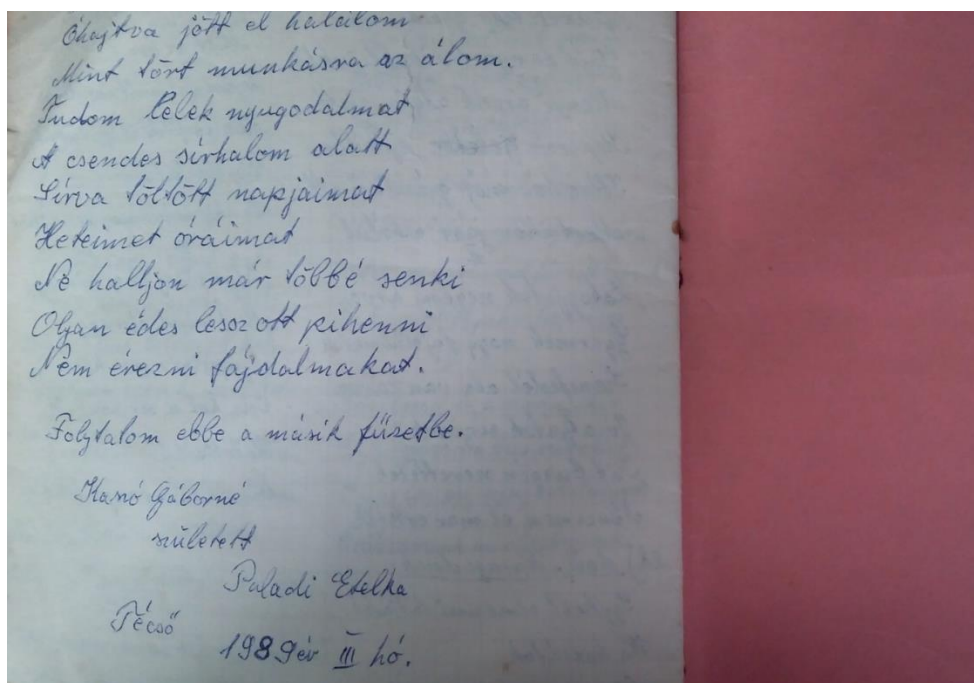 Óhajtva jött el halálom
Mint tört munkásra az álom.
Tudom lelek nyugodalmat
A csendes sírhalom alatt
Sírva töltött napjaimat
Heteimet óráimat
Ne halljon már többé senki
Olyan édes lessz ott pihenni
Nem érezni fájdalmakat.
Folytalom ebbe a másik füzetbe.
Gáborné
született
Paladi Etelka
Técső
1989 év III hó.